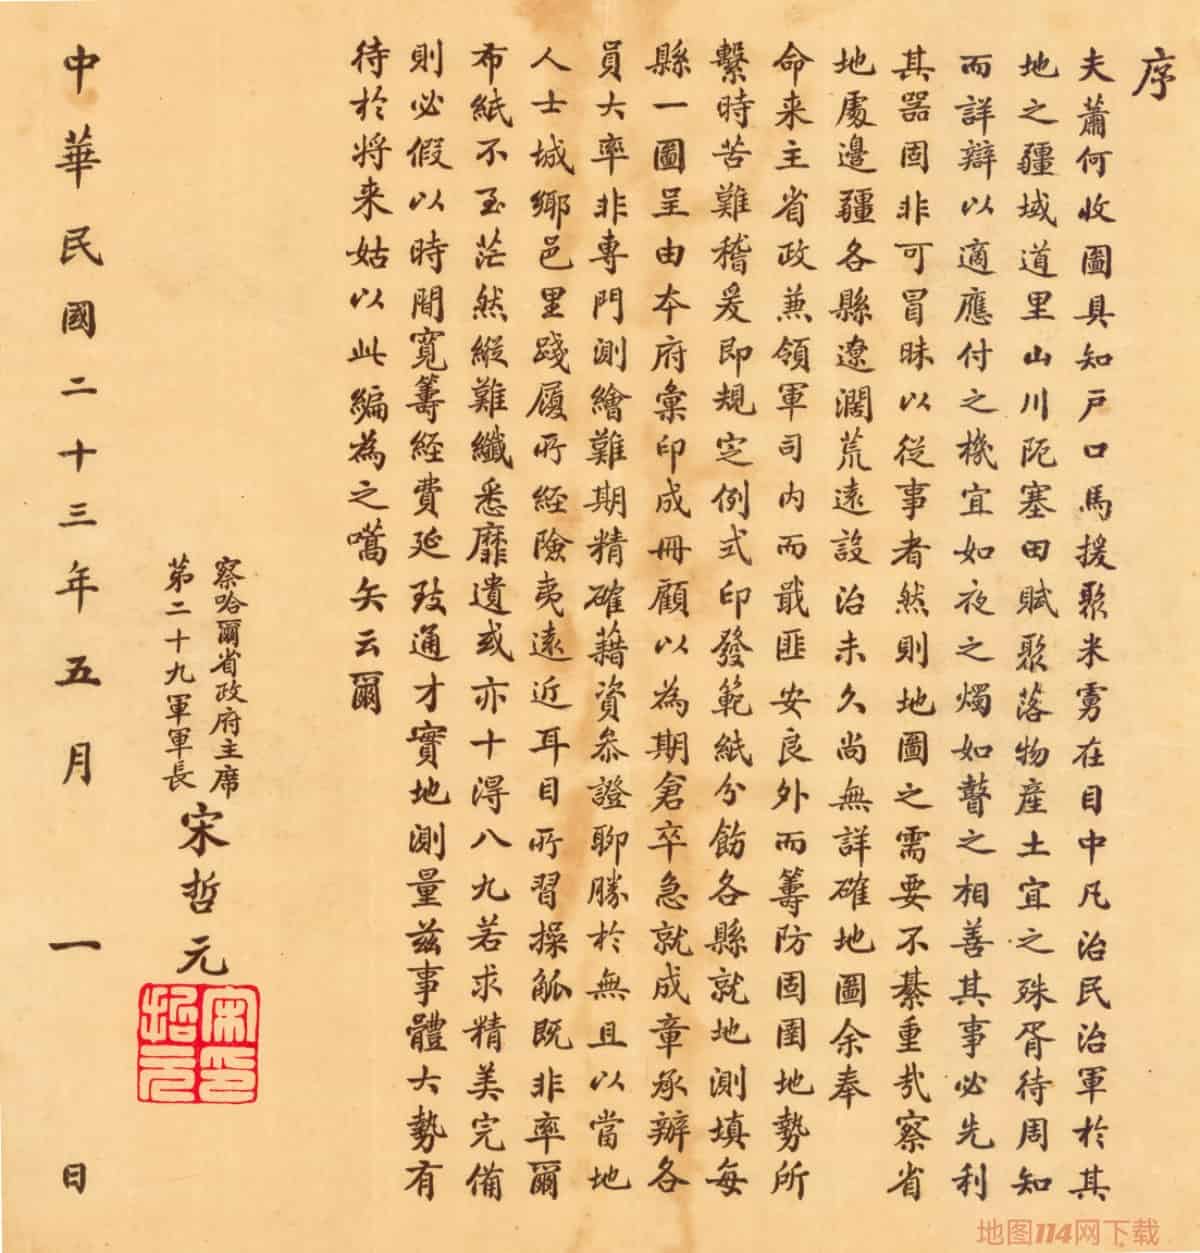 序
夫蕭何收圖具知戸口馬援聚米雱在目中凡治民治軍於其
地之疆域道里山川阨塞田賦聚落物產土宜之殊胥待周知
而詳辯以適應付之機宜如夜之燭如瞽之相善其事必先利
其器固非可冒昧以從事者然則地圖之需要不綦重哉察省
地處邊疆各縣遼濶荒遠設治未久尚無詳確地圖余奉
命来主省政兼領軍司内而戢匪安良外而籌防固圉地勢所
繫時苦難稽爰即規定例式印發範紙分飭各縣就地測填每
縣一圖呈由本府彙印成冊顧以為期倉卒急就成章承辦各
員大率非專門測繪難期精確藉資叅證聊勝於無且以當地
人士城鄉邑里踐履所經險夷遠近耳目所習操觚既非率爾
布紙不至茫然縱難纖悉靡遺或亦十得八九若求精美完備
則必假以時間寛籌経費延致通才實地測量茲事體大勢有
待於將来姑以此編為之嚆矢云爾
察哈爾省政府主席
第二十九軍軍長
宋哲元
宋哲元印
中華民國二十三年五月一日
地图114网下载